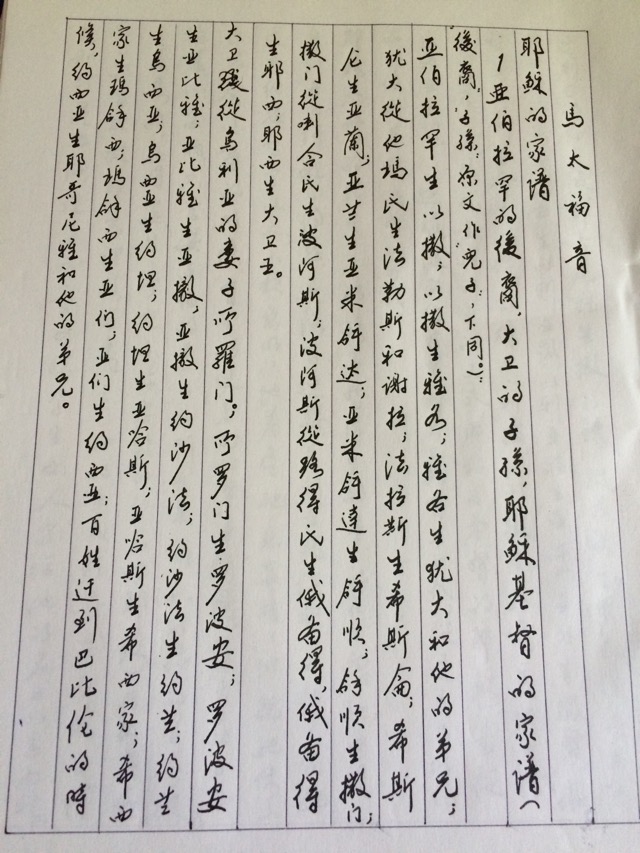 馬太福音
耶穌的家谱
1亚伯拉罕的後裔，大卫的子孫，耶穌基督的家谱（
後裔，子孫：原文作「兒子」，下同。）：
亚伯拉罕生以撒；以撒生雅各；雅各生犹大和他的弟兄；
犹大從他瑪氏生法勒斯和谢拉；法拉斯生希斯侖；希斯
侖生亚蘭；亚兰生亚米拿达；亚米拿達生拿顺；拿顺生撒门；
撒门從喇合氏生波阿斯；波阿斯從路得氏生俄备得；俄备得
生耶西；耶西生大卫王。
大卫從乌利亚的妻子生所羅门。所罗门生罗波安；罗波安
生亚比雅；亚比雅生亚撒；亚撒生约沙法；约沙法生约兰；约兰
生乌西亚；乌西亚生约坦；约坦生亚哈斯；亚哈斯生希西家；希西
家生瑪拿西；瑪拿西生亚们；亚们生约西亚；百姓迁到巴比伦的時
候，约西亚生耶哥尼雅和他的弟兄。